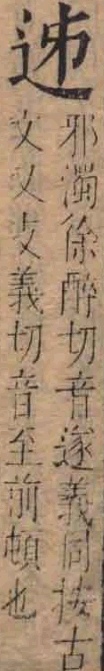 迊
邪濁徐醉切音遂義同按古
文又攴義切音至前頓也